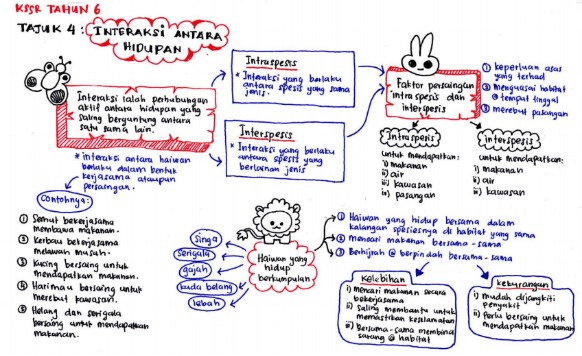 KSSR TAHUN 6
TAJUK 4: INTERAKSI ANTARA
HIDUPAN
Interaksi ialah perhubungan
aktif antara hidupan yang
saling bergantung antara
satu sama lain.
* interaksi antara haiwan
berlaku dalam bentuk
kerjasama ataupun
persaingan.
Contohnya:
① Semut bekerjasama
membawa makanan.
② Kerbau bekerjasama
melawan musuh.
③ Kucing bersaing untuk
mendapatkan makanan.
④ Harimau bersaing untuk
merebut kawasan.
⑤ Helang dan serigala
bersaing untuk mendapatkan
makanan.
Intraspesis
* Interaksi yang berlaku
antara spesis yang sama
jenis.
Interspesis
* Interaksi yang berlaku
antara spesis yang
berlainan jenis
Faktor persaingan
intra spesis dan
interspesis
① keperluan asas
yang terhad
② menguasai habitat
@ tempat tinggal
③ merebut pasangan
Intraspesis
untuk mendapatkan:
i) makanan
ii) air
iii) kawasan
iv) pasangan
interspesis
untuk mendapatkan:
i) makanan
ii) air
iii) kawasan
Haiwan yang
hidup
berkumpulan
Singa
serigala
gajah
kuda belang
lebah
① Haiwan yang hidup bersama dalam
kalangan spesiesnya di habitat yang sama
② mencari makanan bersama-sama
③ Berhijrah @ berpindah bersama-sama
Kelebihan
i) mencari makanan secara
bekerjasama
ii) Saling membantu untuk
memastikan keselamatan
iii) Bersama-sama membina
sarang @ habitat
kekurangan
i) mudah dijangkiti
penyakit
ii) Perlu bersaing untuk
mendapatkan makanan